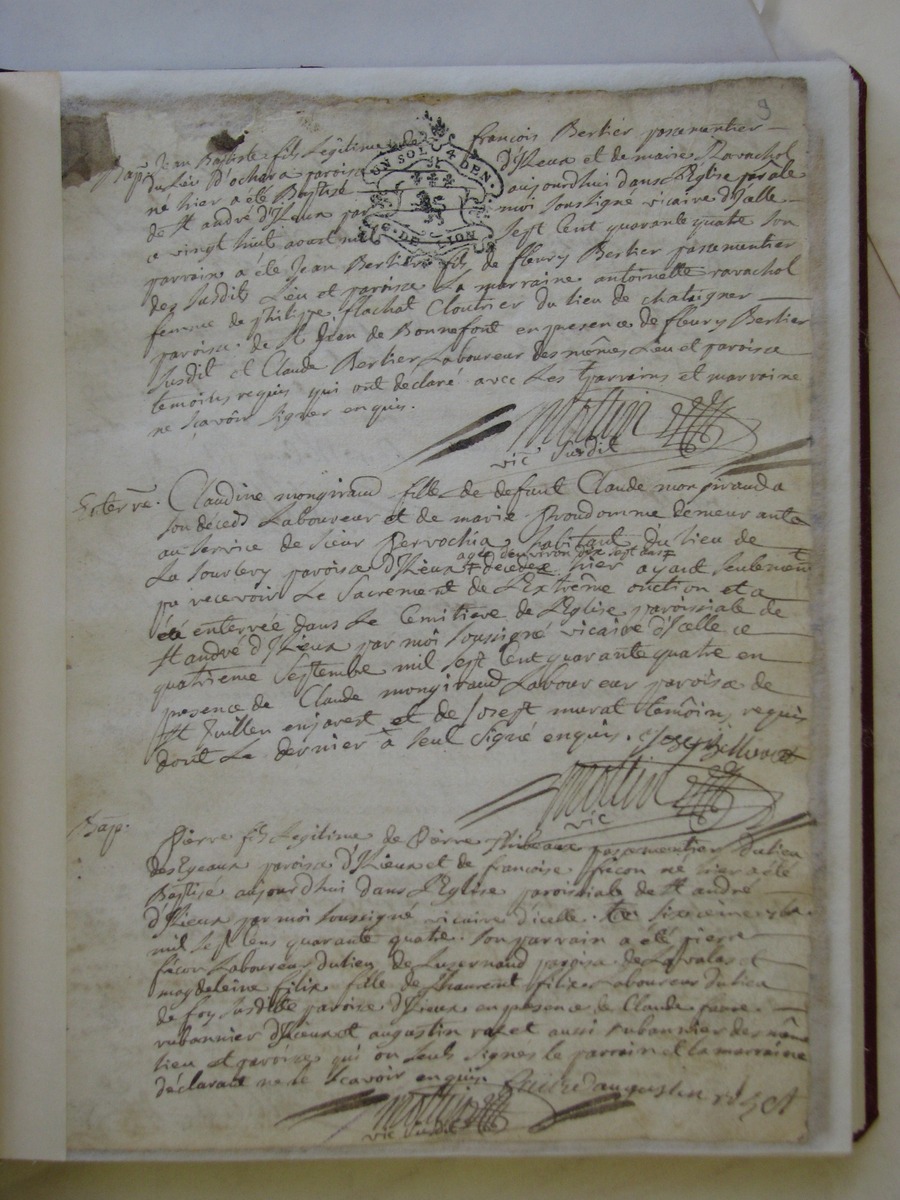 9
Bap. Jean Baptiste fils Légitime de françois Bertier passementier
du Lieu D'ochara paroisse D'Izieux et de marie Ravachol
ne hier a été Baptisé aujourdhui dans L'Eglise parale
de St andré d'Izieux par moi soussigné vicaire d'Icelle
ce vingt huit aoust mil sept Cent quarante quatre son
UN SOL 4 DEN.
G. DE LION
parrain a été Jean Bertier fils de fleury Bertier passementier
des susdits Lieu et paroisse La marraine antoinette ravachol
femme de philippe flachat Cloutrier du lieu de chatigner
paroisse de St Jean de Bonnefont en presence de fleury Bertier
susdit et Claude Bertier Laboureur des mêmes Lieu et paroisse
temoins requis qui ont déclaré avec Les parrains et marraine
ne sçavoir signer enquis.
mottin
vic susdit
Enterre. Claudine mongiraud fille de defunt Claude mongiraud a
son décéds Laboureur et de marie Proudomme demeurante
au service de sieur Pervochia habitant du lieu de
agée denviron dix sept ans
La sourlery paroisse d'Izieux decedée hier ayant seulement
pu recevoir Le Sacrement de L'Extrême onction et a
été enterrée dans Le Cemitiere de L'Eglise paroissiale de
St andré d'Izieux par moi soussigné vicaire d'Icelle ce
quatrieme Septembre mil sept Cent quarante quatre en
presence de Claude mongiraud Laboureur paroisse de
St Juillen en jarest et de Josept murat temoins requis
dont Le dernier à seul signé enquis. Joseph Murat
mottin
vic
Bap.
Pierre fils Legitime de Pierre passementier du lieu
des Egeaux paroisse d'Izieux et de françoise ne hier a été
Baptisé aujourdhui dans L'Eglise paroissiale de St andré
d'Izieux par moi soussigné vicaire d'icelle Le sixieme 7bre
mil sept Cens quarante quatre. son parrain a été pierre
Laboureur du lieu de paroisse de Lavalas et
magdeleine filix fille de Lhaurent filix Laboureur du lieu
de foy susditte paroisse d'Izieux en presence de Claude favre
rubannier d'Izieux et augustin rozet aussi rubannier des même
lieu et paroisse qui on seuls signés le parrain et la marraine
déclarant ne le sçavoir enquis augustin rozet
mottin
vic susdit